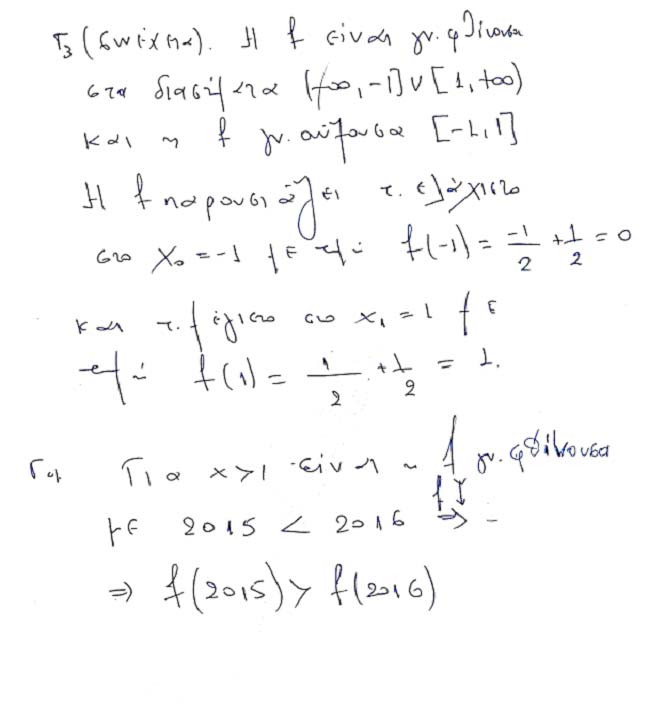 Γ3 (συνέχεια). Η f είναι γν. φθίνουσα
στα διαστήματα (-∞, -1] ∪ [1, +∞)
και η f γν. αύξουσα [-1, 1]
Η f παρουσιάζει τ. ελάχιστο
στο x₀ = -1 με τιμή f(-1) = -1/2 + 1/2 = 0
και τ. μέγιστο στο x₁ = 1 με
τιμή f(1) = 1/2 + 1/2 = 1.
Γ4) Για x>1 είναι η f γν. φθίνουσα
f↓
με 2015 < 2016 ⇒ -
⇒ f(2015) > f(2016)